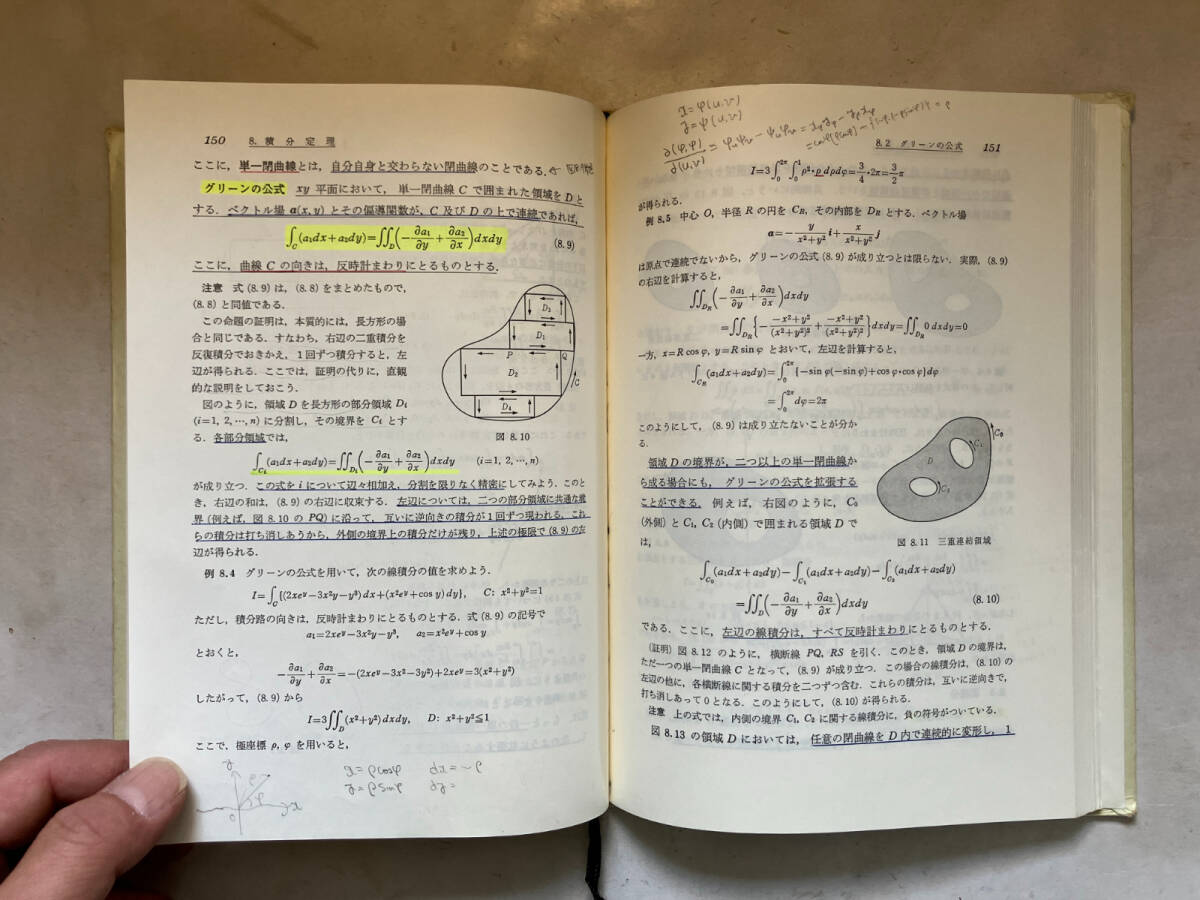 150 8. 積 分 定 理
ここに, 単一閉曲線とは, 自分自身と交わらない閉曲線のことである.
グリーンの公式 xy 平面において, 単一閉曲線 C で囲まれた領域を D と
する. ベクトル場 a(x, y) とその偏導関数が, C 及び D の上で連続であれば,
∫_C (a₁dx+a₂dy)=∬_D(−∂a₁/∂y+∂a₂/∂x)dxdy (8.9)
ここに, 曲線 C の向きは, 反時計まわりにとるものとする.
注意 式 (8.9) は, (8.8) をまとめたもので,
(8.8) と同値である.
この命題の証明は, 本質的には, 長方形の場
合と同じである. すなわち, 右辺の二重積分を
反復積分でおきかえ, 1回ずつ積分すると, 左
辺が得られる. ここでは, 証明の代りに, 直観
的な説明をしておこう.
図のように, 領域 D を長方形の部分領域 Dᵢ
(i=1, 2, ⋯, n) に分割し, その境界を Cᵢ とす
る. 各部分領域では,
D₃
D₁
P Q
D₂
C
D₄
図 8.10
∫_Cᵢ (a₁dx+a₂dy)=∬_Dᵢ(−∂a₁/∂y+∂a₂/∂x)dxdy (i=1, 2, ⋯, n)
が成り立つ. この式を i について辺々相加え, 分割を限りなく精密にしてみよう. このと
き, 右辺の和は, (8.9) の右辺に収束する. 左辺については, 二つの部分領域に共通な境
界 (例えば, 図 8.10 の PQ) に沿って, 互いに逆向きの積分が1回ずつ現われる. これ
らの積分は打ち消しあうから, 外側の境界上の積分だけが残り, 上述の極限で (8.9) の左
辺が得られる.
例 8.4 グリーンの公式を用いて, 次の線積分の値を求めよう.
I=∫_C{(2xeʸ−3x²y−y³)dx+(x²eʸ+cos y)dy}, C: x²+y²=1
ただし, 積分路の向きは, 反時計まわりにとるものとする. 式 (8.9) の記号で
a₁=2xeʸ−3x²y−y³, a₂=x²eʸ+cos y
とおくと,
−∂a₁/∂y+∂a₂/∂x=−(2xeʸ−3x²−3y²)+2xeʸ=3(x²+y²)
したがって, (8.9) から
I=3∬_D(x²+y²)dxdy, D: x²+y²≦1
ここで, 極座標 ρ, φ を用いると,
y ρ φ
O x
x=ρcosφ dx=~ρ
y=ρsinφ dy=
x=φ(u,v)
y=ψ(u,v)
8.2 グリーンの公式 151
I=3∫₀^{2π}∫₀¹ρ²·ρ dρdφ=3/4·2π=3/2 π
が得られる.
例 8.5 中心 O, 半径 R の円を C_R, その内部を D_R とする. ベクトル場
a=−y/(x²+y²) i+x/(x²+y²) j
は原点で連続でないから, グリーンの公式 (8.9) が成り立つとは限らない. 実際, (8.9)
の右辺を計算すると,
∬_{D_R}(−∂a₁/∂y+∂a₂/∂x)dxdy
=∬_{D_R}{−(−x²+y²)/(x²+y²)²+(−x²+y²)/(x²+y²)²}dxdy=∬_{D_R}0 dxdy=0
一方, x=R cos φ, y=R sin φ とおいて, 左辺を計算すると,
∫_{C_R}(a₁dx+a₂dy)=∫₀^{2π}{−sin φ(−sin φ)+cos φ·cos φ}dφ
=∫₀^{2π}dφ=2π
このようにして, (8.9) は成り立たないことが分か
る.
領域 D の境界が, 二つ以上の単一閉曲線か
ら成る場合にも, グリーンの公式を拡張する
ことができる. 例えば, 右図のように, C₀
(外側) と C₁, C₂ (内側) で囲まれる領域 D で
は,
C₀
C₁
D
C₂
図 8.11 三重連結領域
∫_{C₀}(a₁dx+a₂dy)−∫_{C₁}(a₁dx+a₂dy)−∫_{C₂}(a₁dx+a₂dy)
=∬_D(−∂a₁/∂y+∂a₂/∂x)dxdy (8.10)
である. ここに, 左辺の線積分は, すべて反時計まわりにとるものとする.
(証明) 図 8.12 のように, 横断線 PQ, RS を引く. このとき, 領域 D の境界は,
ただ一つの単一閉曲線 C となって, (8.9) が成り立つ. この場合の線積分は, (8.10) の
左辺の他に, 各横断線に関する積分を二つずつ含む. これらの積分は, 互いに逆向きで,
打ち消しあって 0 となる. このようにして, (8.10) が得られる.
注意 上の式では, 内側の境界 C₁, C₂ に関する線積分に, 負の符号がついている.
図 8.13 の領域 D においては, 任意の閉曲線を D 内で連続的に変形し, 1